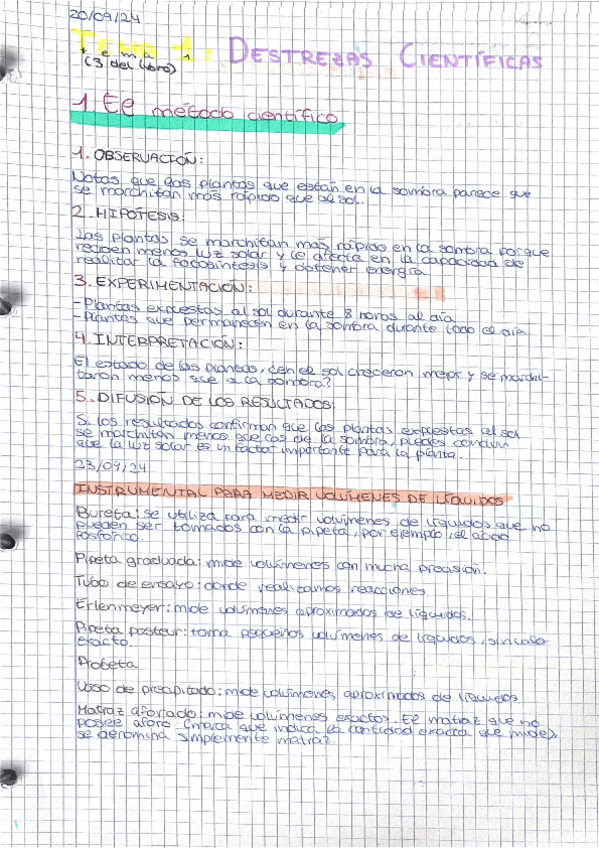 20/09/24
Tema 1: DESTREZAS CIENTÍFICAS
tema 1
(3 del libro)
1. El método científico
1. OBSERVACIÓN:
Notas que las plantas que están en la sombra parece que
se marchitan más rápido que al sol.
2. HIPÓTESIS:
Las plantas se marchitan más rápido en la sombra porque
reciben menos luz solar y le afecta en la capacidad de
realizar la fotosíntesis y obtener energía
3. EXPERIMENTACIÓN:
-Plantas expuestas al sol durante 8 horas al día
-Plantas que permanecen en la sombra durante todo el día
4. INTERPRETACIÓN:
El estado de las plantas, ¿en el sol crecieron mejor y se marchi-
taron menos que a la sombra?
5. DIFUSIÓN DE LOS RESULTADOS:
Si los resultados confirman que las plantas expuestas al sol
se marchitan menos que las de la sombra, puedes concluir
que la luz solar es un factor importante para la planta.
23/09/24
INSTRUMENTAL PARA MEDIR VOLÚMENES DE LÍQUIDOS
Bureta: se utiliza para medir volúmenes de líquidos que no
pueden ser tomados con la pipeta, por ejemplo, el ácido
fosfórico.
Pipeta graduada: mide volúmenes con mucha precisión.
Tubo de ensayo: donde realizamos reacciones
Erlenmeyer: mide volúmenes aproximados de líquidos.
Pipeta pasteur: toma pequeños volúmenes de líquidos, sin valor
exacto.
Probeta
Vaso de precipitado: mide volúmenes aproximados de líquidos
Matraz aforado: mide volúmenes exactos. El matraz que no
posee aforo (marca que indica la cantidad exacta que mide),
se denomina simplemente matraz.